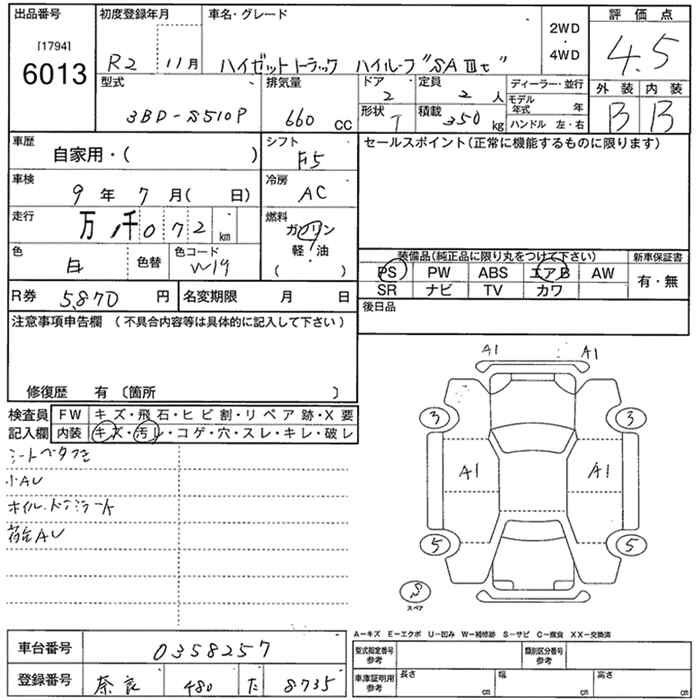 出品番号 初度登録年月 車名・グレード 2WD・4WD 評価点
[1794]
6013
R2 11月 ハイゼットトラック ハイルーフ"SAⅢt" 4.5
型式 排気量 ドア 定員 ディーラー・並行 外装 内装
3BD-S510P 660cc 2 2人 モデル年式 年 B B
形状 T 積載 350kg ハンドル 左・右
車歴 シフト セールスポイント(正常に機能するものに限ります)
自家用・( ) F5
車検 冷房
9年7月( 日) AC
走行 燃料
万千072km ガソリン
軽・油
( )
色 色替 色コード
白 W19
装備品(純正品に限り丸をつけて下さい) 新車保証書
PS PW ABS エアB AW 有・無
SR ナビ TV カワ
R券 5,870円 名変期限 月 日 後日品
注意事項申告欄(不具合内容等は具体的に記入して下さい)
修復歴 有〔箇所 〕
検査員 FW キズ・飛石・ヒビ割・リペア跡・X要
記入欄 内装 キズ・汚レ・コゲ・穴・スレ・キレ・破レ
シートベタつき
小AU
荷台AU
A1 A1
3 3
A1 A1
5 5
S
スペア
A-キズ E-エクボ U-凹み W-補修跡 S-サビ C-腐食 XX-交換済
車台番号 0358257 型式指定番号参考 類別区分番号参考
登録番号 奈良 480 た 8735 車庫証明用参考 長さ cm 幅 cm 高さ cm